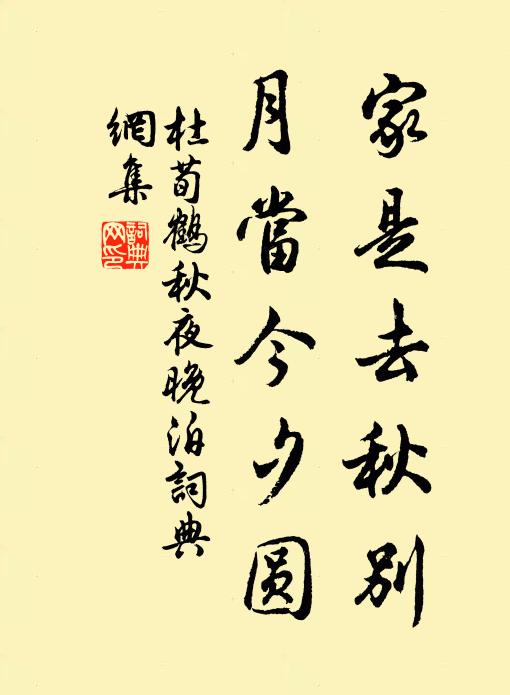 家是去秋别
月當今夕圆
杜荀鶴秋夜晚泊詞典
網集
詞典网印